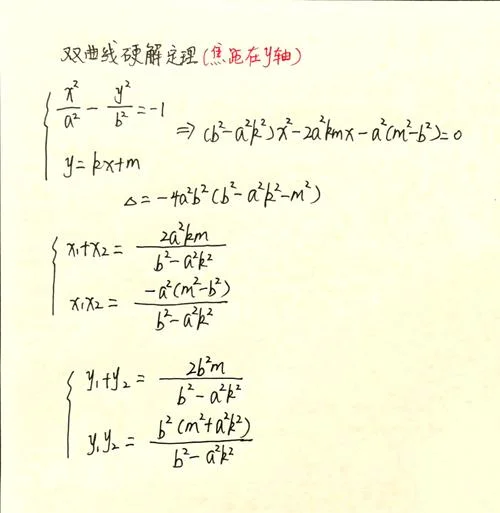 双曲线硬解定理(焦距在y轴)
x²/a² - y²/b² = -1
⇒ (b²-a²k²)x²-2a²kmx-a²(m²-b²)=0
y=kx+m
△=-4a²b²(b²-a²k²-m²)
x₁+x₂ = 2a²km/(b²-a²k²)
x₁x₂ = -a²(m²-b²)/(b²-a²k²)
y₁+y₂ = 2b²m/(b²-a²k²)
y₁y₂ = b²(m²+a²k²)/(b²-a²k²)